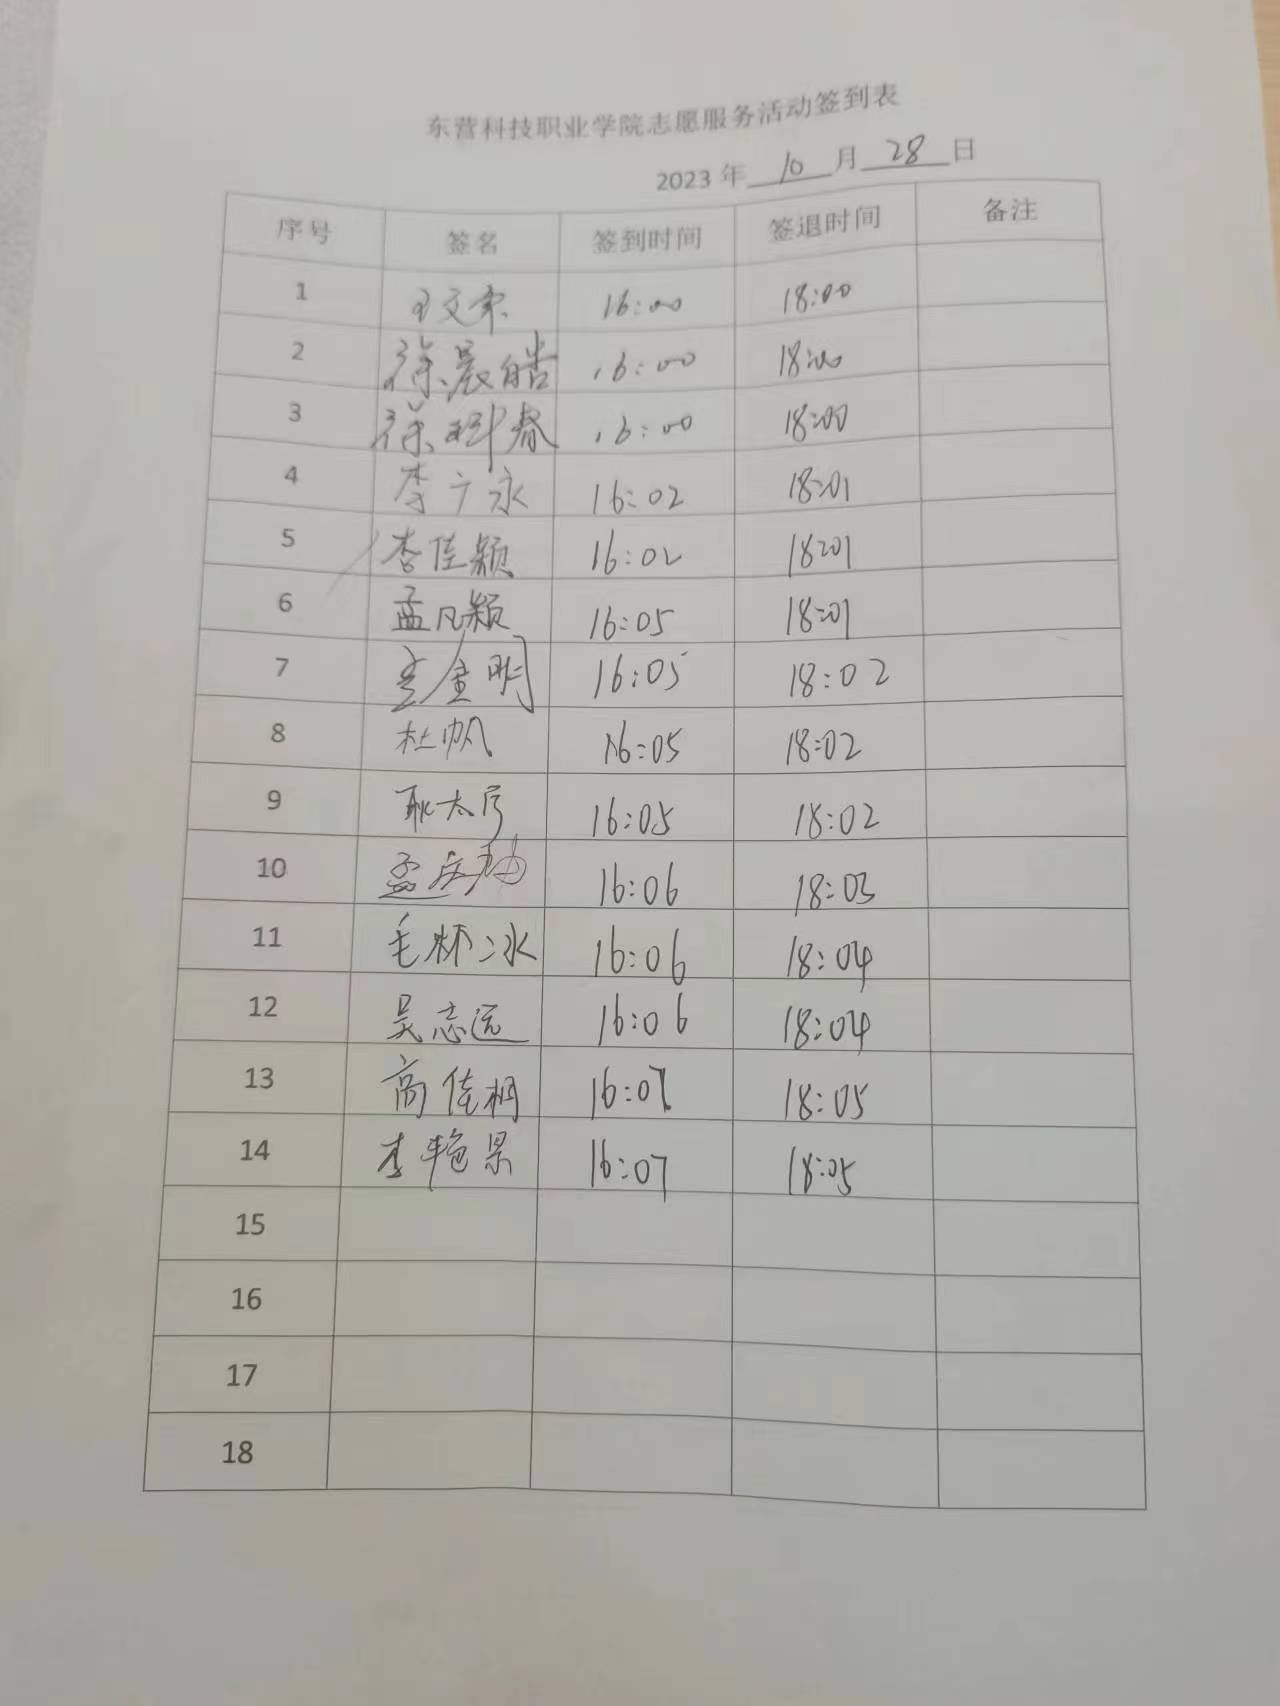 东营科技职业学院志愿服务活动签到表
2023 年 10 月 28 日
序号 签名 签到时间 签退时间 备注
1 16:00 18:00
2 徐晨皓 16:00 18:00
3 徐科春 16:00 18:00
4 李广永 16:02 18:01
5 李佳颖 16:02 18:01
6 孟凡颖 16:05 18:01
7 16:05 18:02
8 杜帆 16:05 18:02
9 16:05 18:02
10 16:06 18:03
11 16:06 18:04
12 吴志远 16:06 18:04
13 高佳桐 16:07 18:05
14 李艳景 16:07 18:05
15
16
17
18